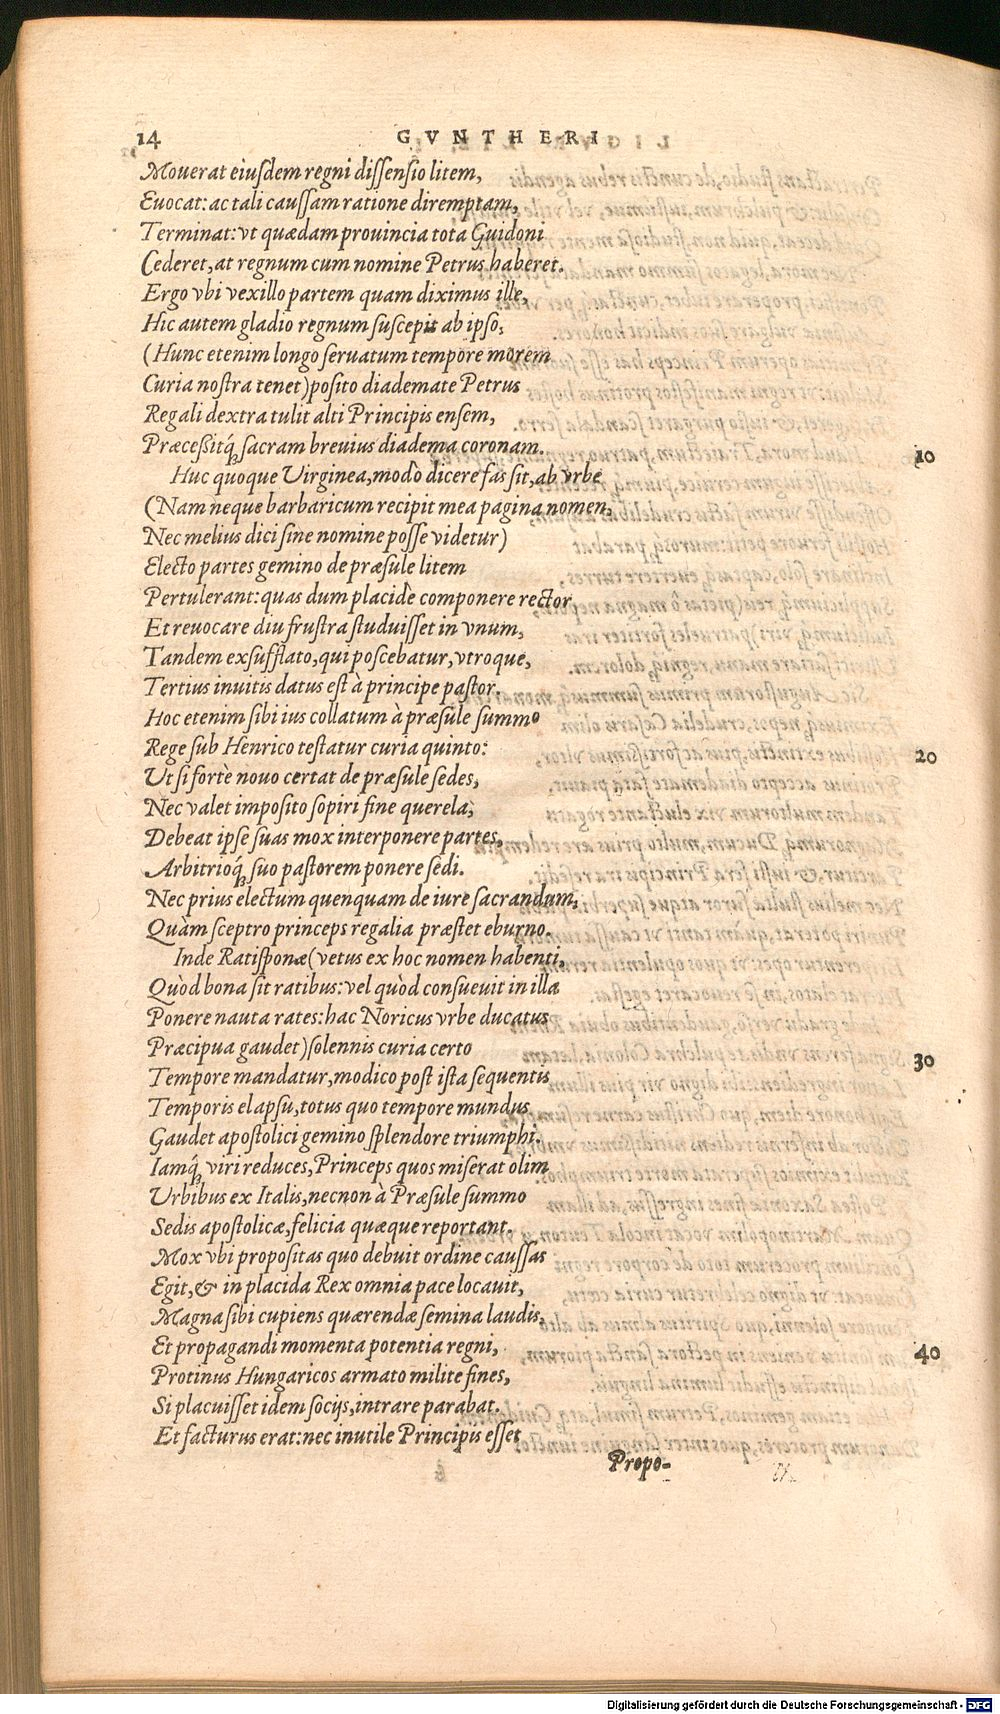 14 GVNTHERI
Mouerat eiusdem regni dissensio litem,
Euocat: ac tali caussam ratione diremptam,
Terminat: vt quædam prouincia tota Guidoni
Cederet, at regnum cum nomine Petrus haberet.
Ergo vbi vexillo partem quam diximus ille,
Hic autem gladio regnum suscepit ab ipso;
(Hunc etenim longo seruatum tempore morem
Curia nostra tenet) posito diademate Petrus
Regali dextra tulit alti Principis ensem,
Præceßitq́; sacram breuius diadema coronam. 10
Huc quoque Virginea, modò dicere fas sit, ab vrbe
(Nam neque barbaricum recipit mea pagina nomen,
Nec melius dici sine nomine posse videtur)
Electo partes gemino de præsule litem
Pertulerant: quas dum placidè componere rector
Et reuocare diu frustra studuisset in vnum,
Tandem exsufflato, qui poscebatur, vtroque,
Tertius inuitis datus est à principe pastor.
Hoc etenim sibi ius collatum à præsule summo
Rege sub Henrico testatur curia quinto: 20
Ut si fortè nouo certat de præsule sedes,
Nec valet imposito sopiri fine querela,
Debeat ipse suas mox interponere partes,
Arbitrioq́; suo pastorem ponere sedi.
Nec prius electum quenquam de iure sacrandum,
Quàm sceptro princeps regalia præstet eburno.
Inde Ratisponæ (vetus ex hoc nomen habenti,
Quòd bona sit ratibus: vel quòd consueuit in illa
Ponere nauta rates: hac Noricus vrbe ducatus
Præcipua gaudet) solennis curia certo 30
Tempore mandatur, modico post ista sequentis
Temporis elapsu, totus quo tempore mundus
Gaudet apostolici gemino splendore triumphi.
Iamq́; viri reduces, Princeps quos miserat olim
Urbibus ex Italis, necnon à Præsule summo
Sedis apostolicæ, felicia quæque reportant.
Mox vbi propositas quo debuit ordine caussas
Egit, & in placida Rex omnia pace locauit,
Magna sibi cupiens quærendæ semina laudis,
Et propagandi momenta potentia regni, 40
Protinus Hungaricos armato milite fines,
Si placuisset idem socijs, intrare parabat.
Et facturus erat: nec inutile Principis esset
Propo-
Digitalisierung gefördert durch die Deutsche Forschungsgemeinschaft - DFG